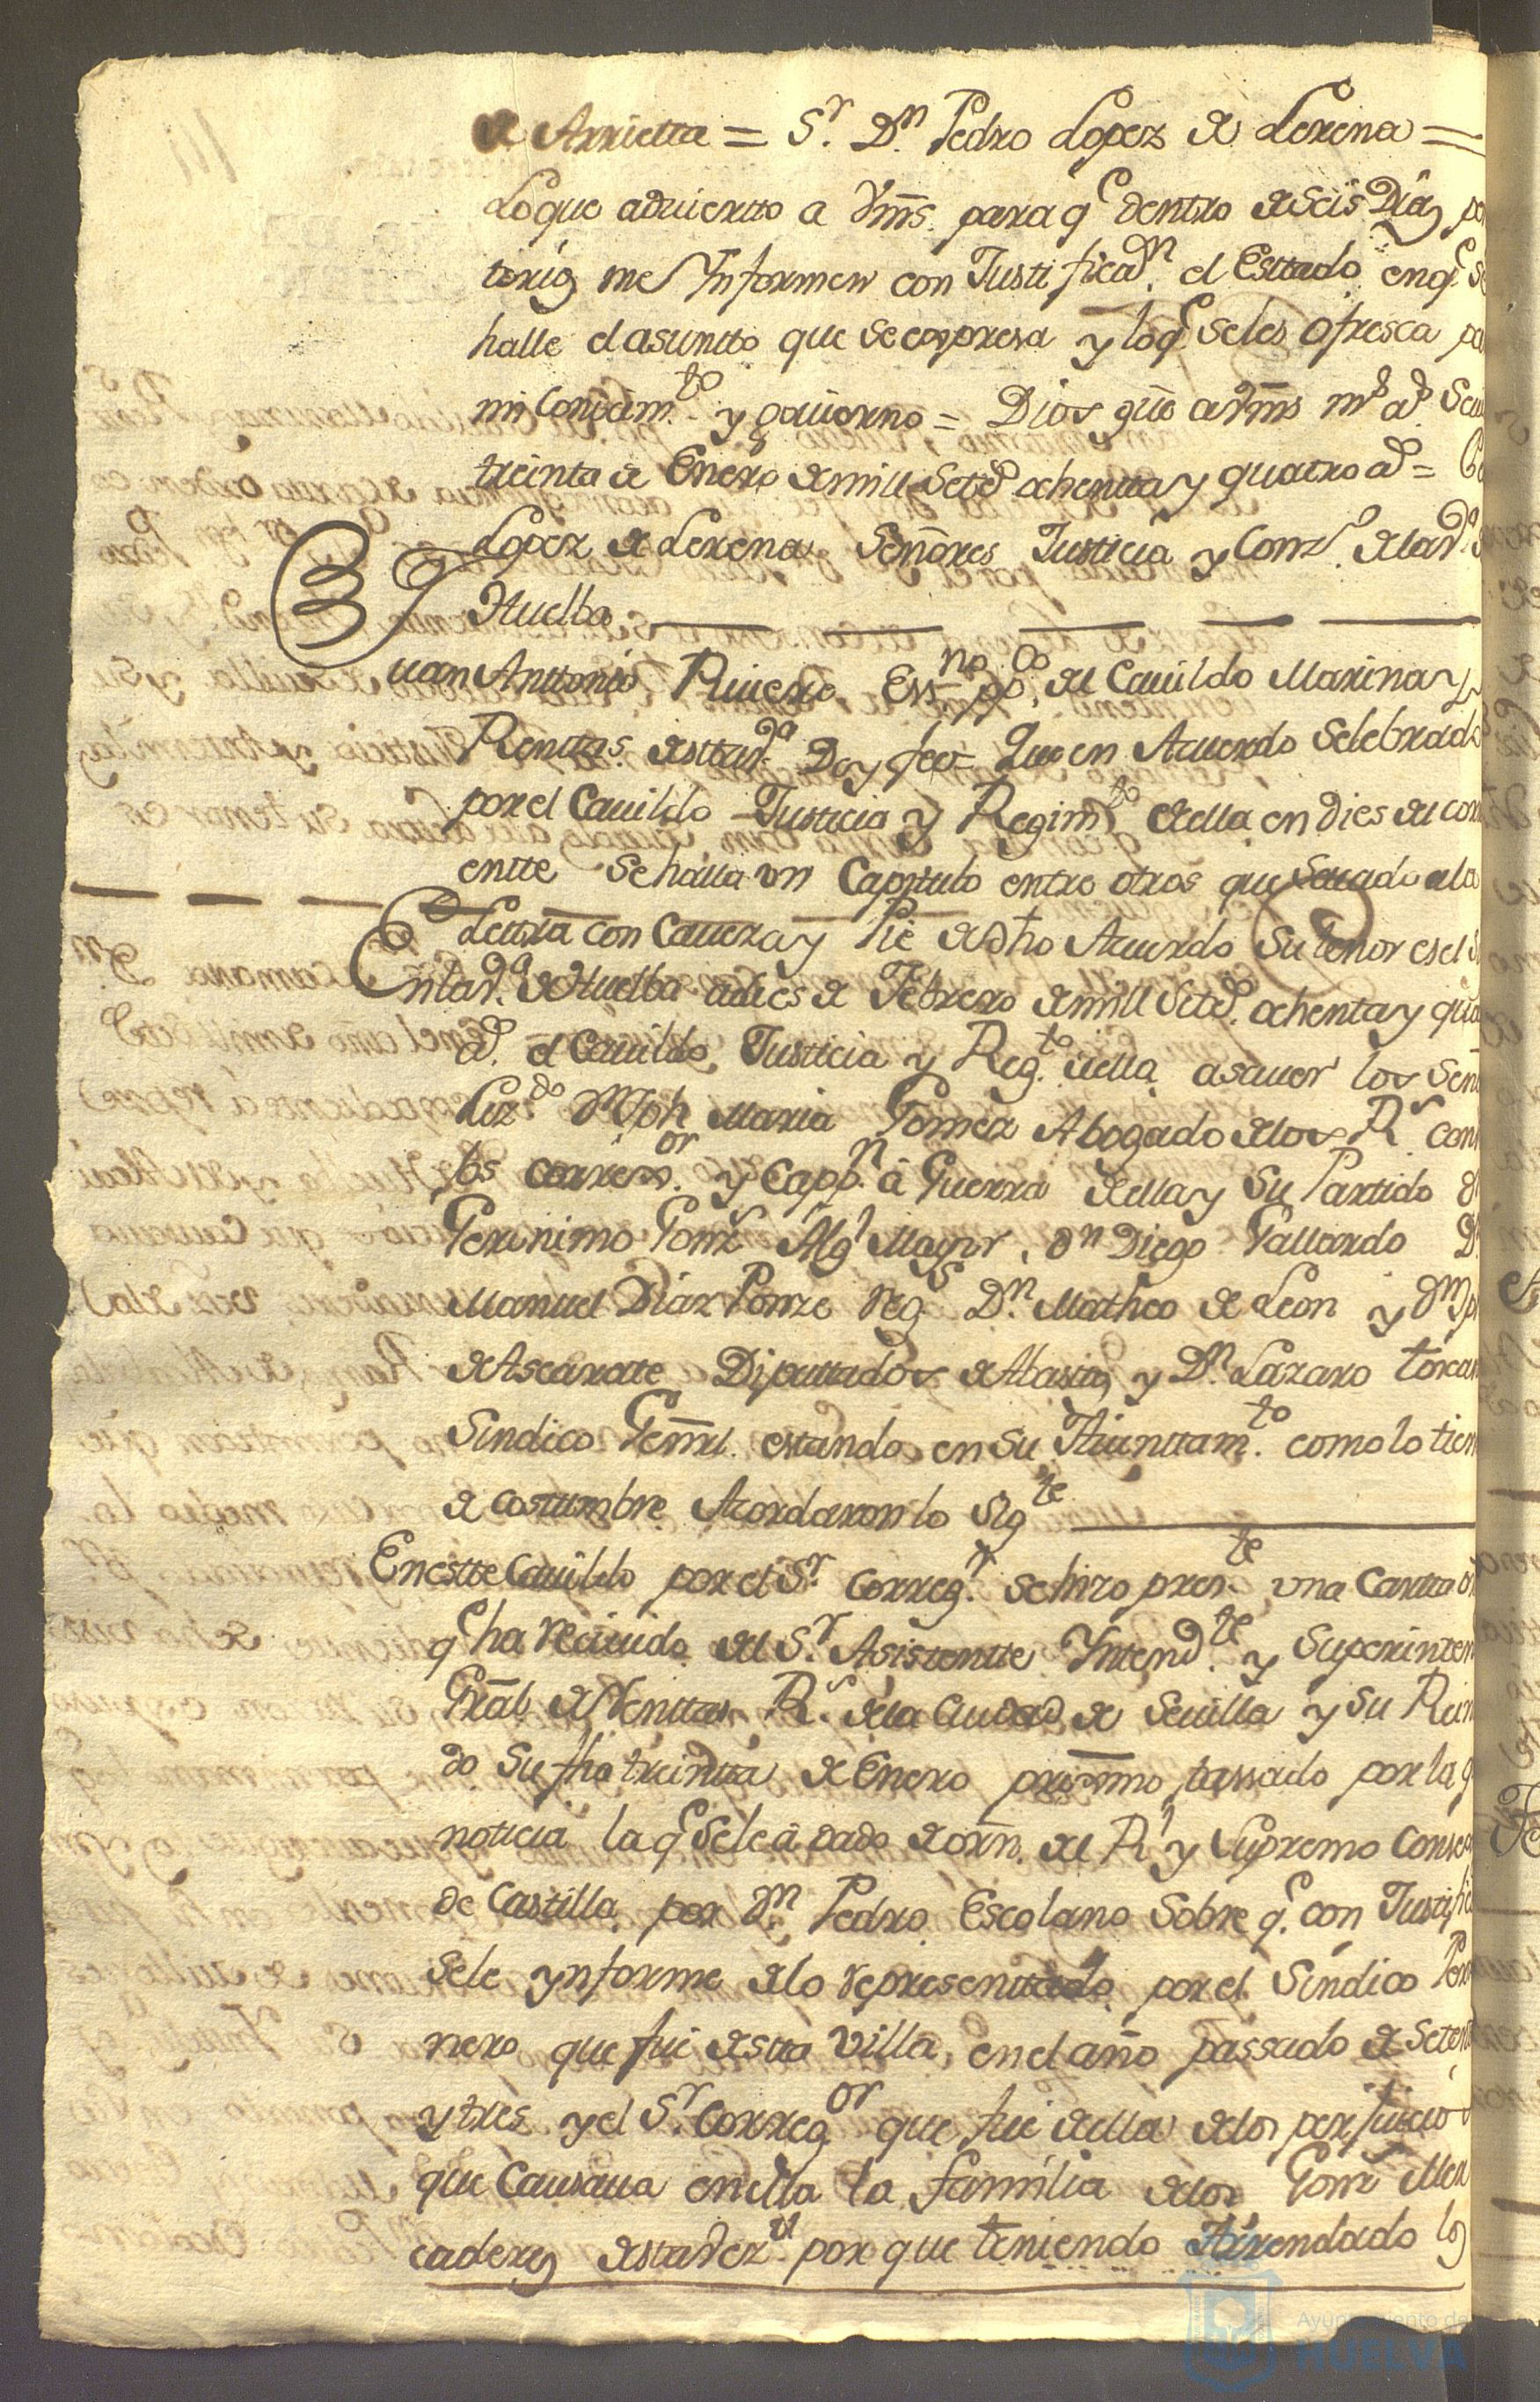 de Arrietta = Sr. Dn. Pedro Lopez de Lerena =
Loque aduiertto a Vms. para qe dentro de seis Dias
torios me Ynformen con Justificadn. el Esttado enqe se
halle el asuntto que se expresa y loqe seles ofresca pa
mi Conosim.to y gouierno = Dios gûe a Vms ms as. Seui
treinta de Enero de mill Settos ochentta y quatro as =
Lopez de Lerena, Señores Justicia y Conzo. de la Va. de
Huelba
Juan Anttonio Riuero Essno. ppco. del Cauildo Marina y
Renttas de esttaVa. Doy fee = Que en Acuerdo Selebrado
por el Cauildo Justicia y Regimto de ella en dies del corri
entte se halla vn Capitulo entre otros que sacado a la
Letra con Caueza y Pie de dho Acuerdo su tenor es el
EnlaVa. de Huelba a dies de Febrero de mill Settos. ochenta y qua
as. el Cauildo Justicia y Regto. de ella asauer los Señ
Lizdo Dn Joh Maria Gomez Abogado de los Rs. con
jos corressor. y Cappn. â Guerra de ella y Su Partido Dn
Geronimo Gomz Algl Mayor, Dn Diego Gallardo Dn
Manuel Diaz Ponze Regs Dn. Matheo de Leon y Dn
de Ascarate Diputtados de Abastos y Dn. Lazaro
Sindico Gennl. estando en su Aiunttamto. como lo tien
de costumbre Acordaron lo Sigte
En estte Cauildo por el Sr. Corregr. se hizo preste. vna Cartta
qe ha reciuido del Sr. Asistentte Yntendte. y Superinten
Gral de Renttas Rs. de la Ciudad de Seuilla y su Rein
do su fha treintta de Enero proximo passado por la q
noticia la qe Sele â dado de orn. del Rl y Supremo Consejo
de Castilla por Dn. Pedro Escolano Sobre qe. con Justifi
sele ynforme de lo representtado por el Sindico Perso
nero que fue de estta Villa, en el año passado de Setent
y tres y el Sr. Corregor que fue de ella de los perjuicios
que Causaua en ella la familia de los Gomz Mer
caderes de esta Vez. por que teniendo Arrendado los
Ayuntamiento de
HUELVA